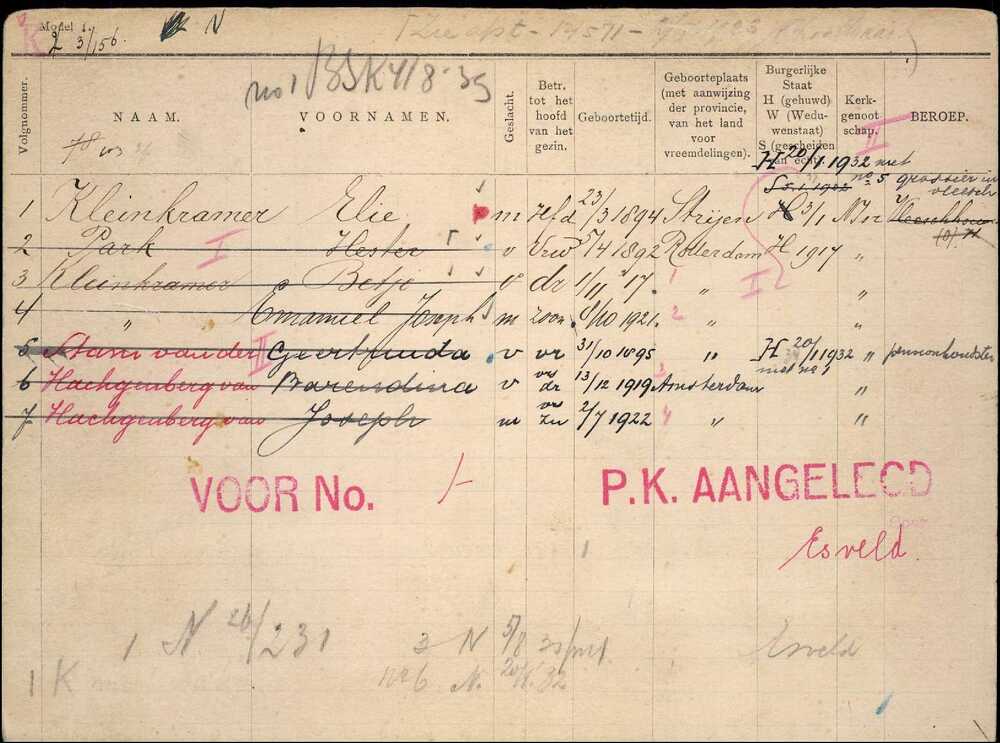 Model 1.
K
2 3/156.
N
no 1 BSK 4/8-35
Volgnummer.
NAAM.
VOORNAMEN.
Geslacht.
Betr. tot het hoofd van het gezin.
Geboortetijd.
Geboorteplaats (met aanwijzing der provincie, van het land voor vreemdelingen).
Burgerlijke Staat H (gehuwd) W (Weduwenstaat) S (gescheiden van echt).
Kerkgenootschap.
BEROEP.
II
H 20/1 1932 met no 5
grossier in vleesch
1 Kleinkramer Elie m Hfd 23/3 1894 Strijen H 3/1 N Isr
2 Park I Hester v Vrw 5/4 1892 Rotterdam H 1917 "
3 Kleinkramer Betje v dr 1/11 '17. 1 " I "
4 " Emanuel Joseph m zoon 8/10 1921. 2 " "
5 Stam van der II Geertruida v vr 31/10 1895 " H 20/1 1932 met no 1 " pensionhoudster
6 Hachgenberg van Barendina v vr dr 13/12 1919 3 Amsterdam "
7 Hachgenberg van Joseph m vr zn 2/7 1922 4 " "
VOOR No. 1
P.K. AANGELEGD
Esveld.
1 N 26/231
3 N 5/8 35
Esveld
1 K
no 6 N. 32